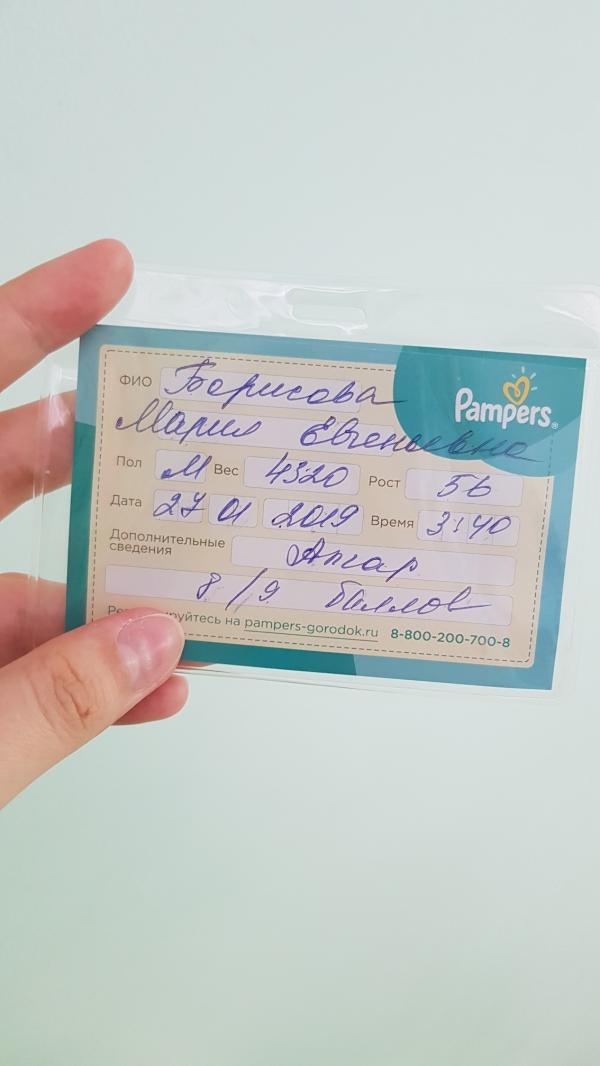 ФИО Борисова
Pampers®
Мария Евгеньевна
Пол М Вес 4320 Рост 56
Дата 27 01 2019 Время 3:40
Дополнительные сведения Апгар
8/9 баллов
на pampers-gorodok.ru 8-800-200-700-8